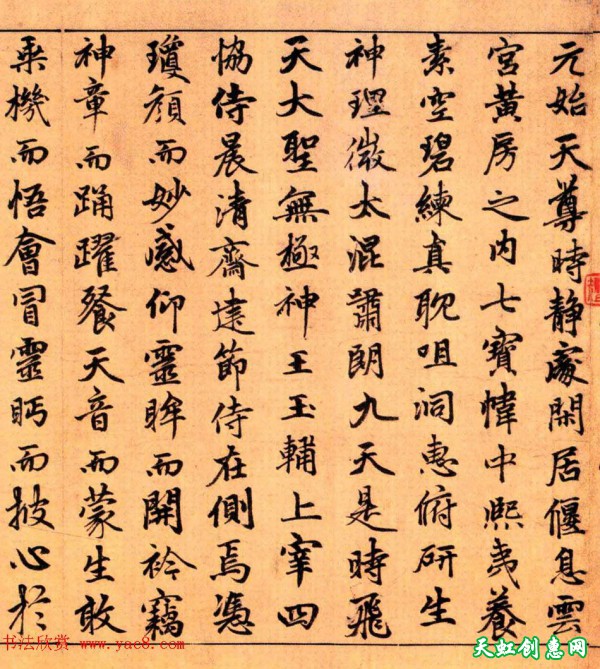 元始天尊時静處閑居偃息雲
宮黃房之内七寶幃中熙夷養
素空碧練真耽咀洞惠俯研生
神理微太混嘯朗九天是時飛
天大聖無極神王玉輔上宰四
協侍晨清齋建節侍在側焉憑
瓊顏而妙感仰靈眸而開衿竊
神章而踊躍餐天音而蒙生敢
乘機而悟會冒靈眄而披心於
书法欣赏 www.yac8.com
天虹创惠网